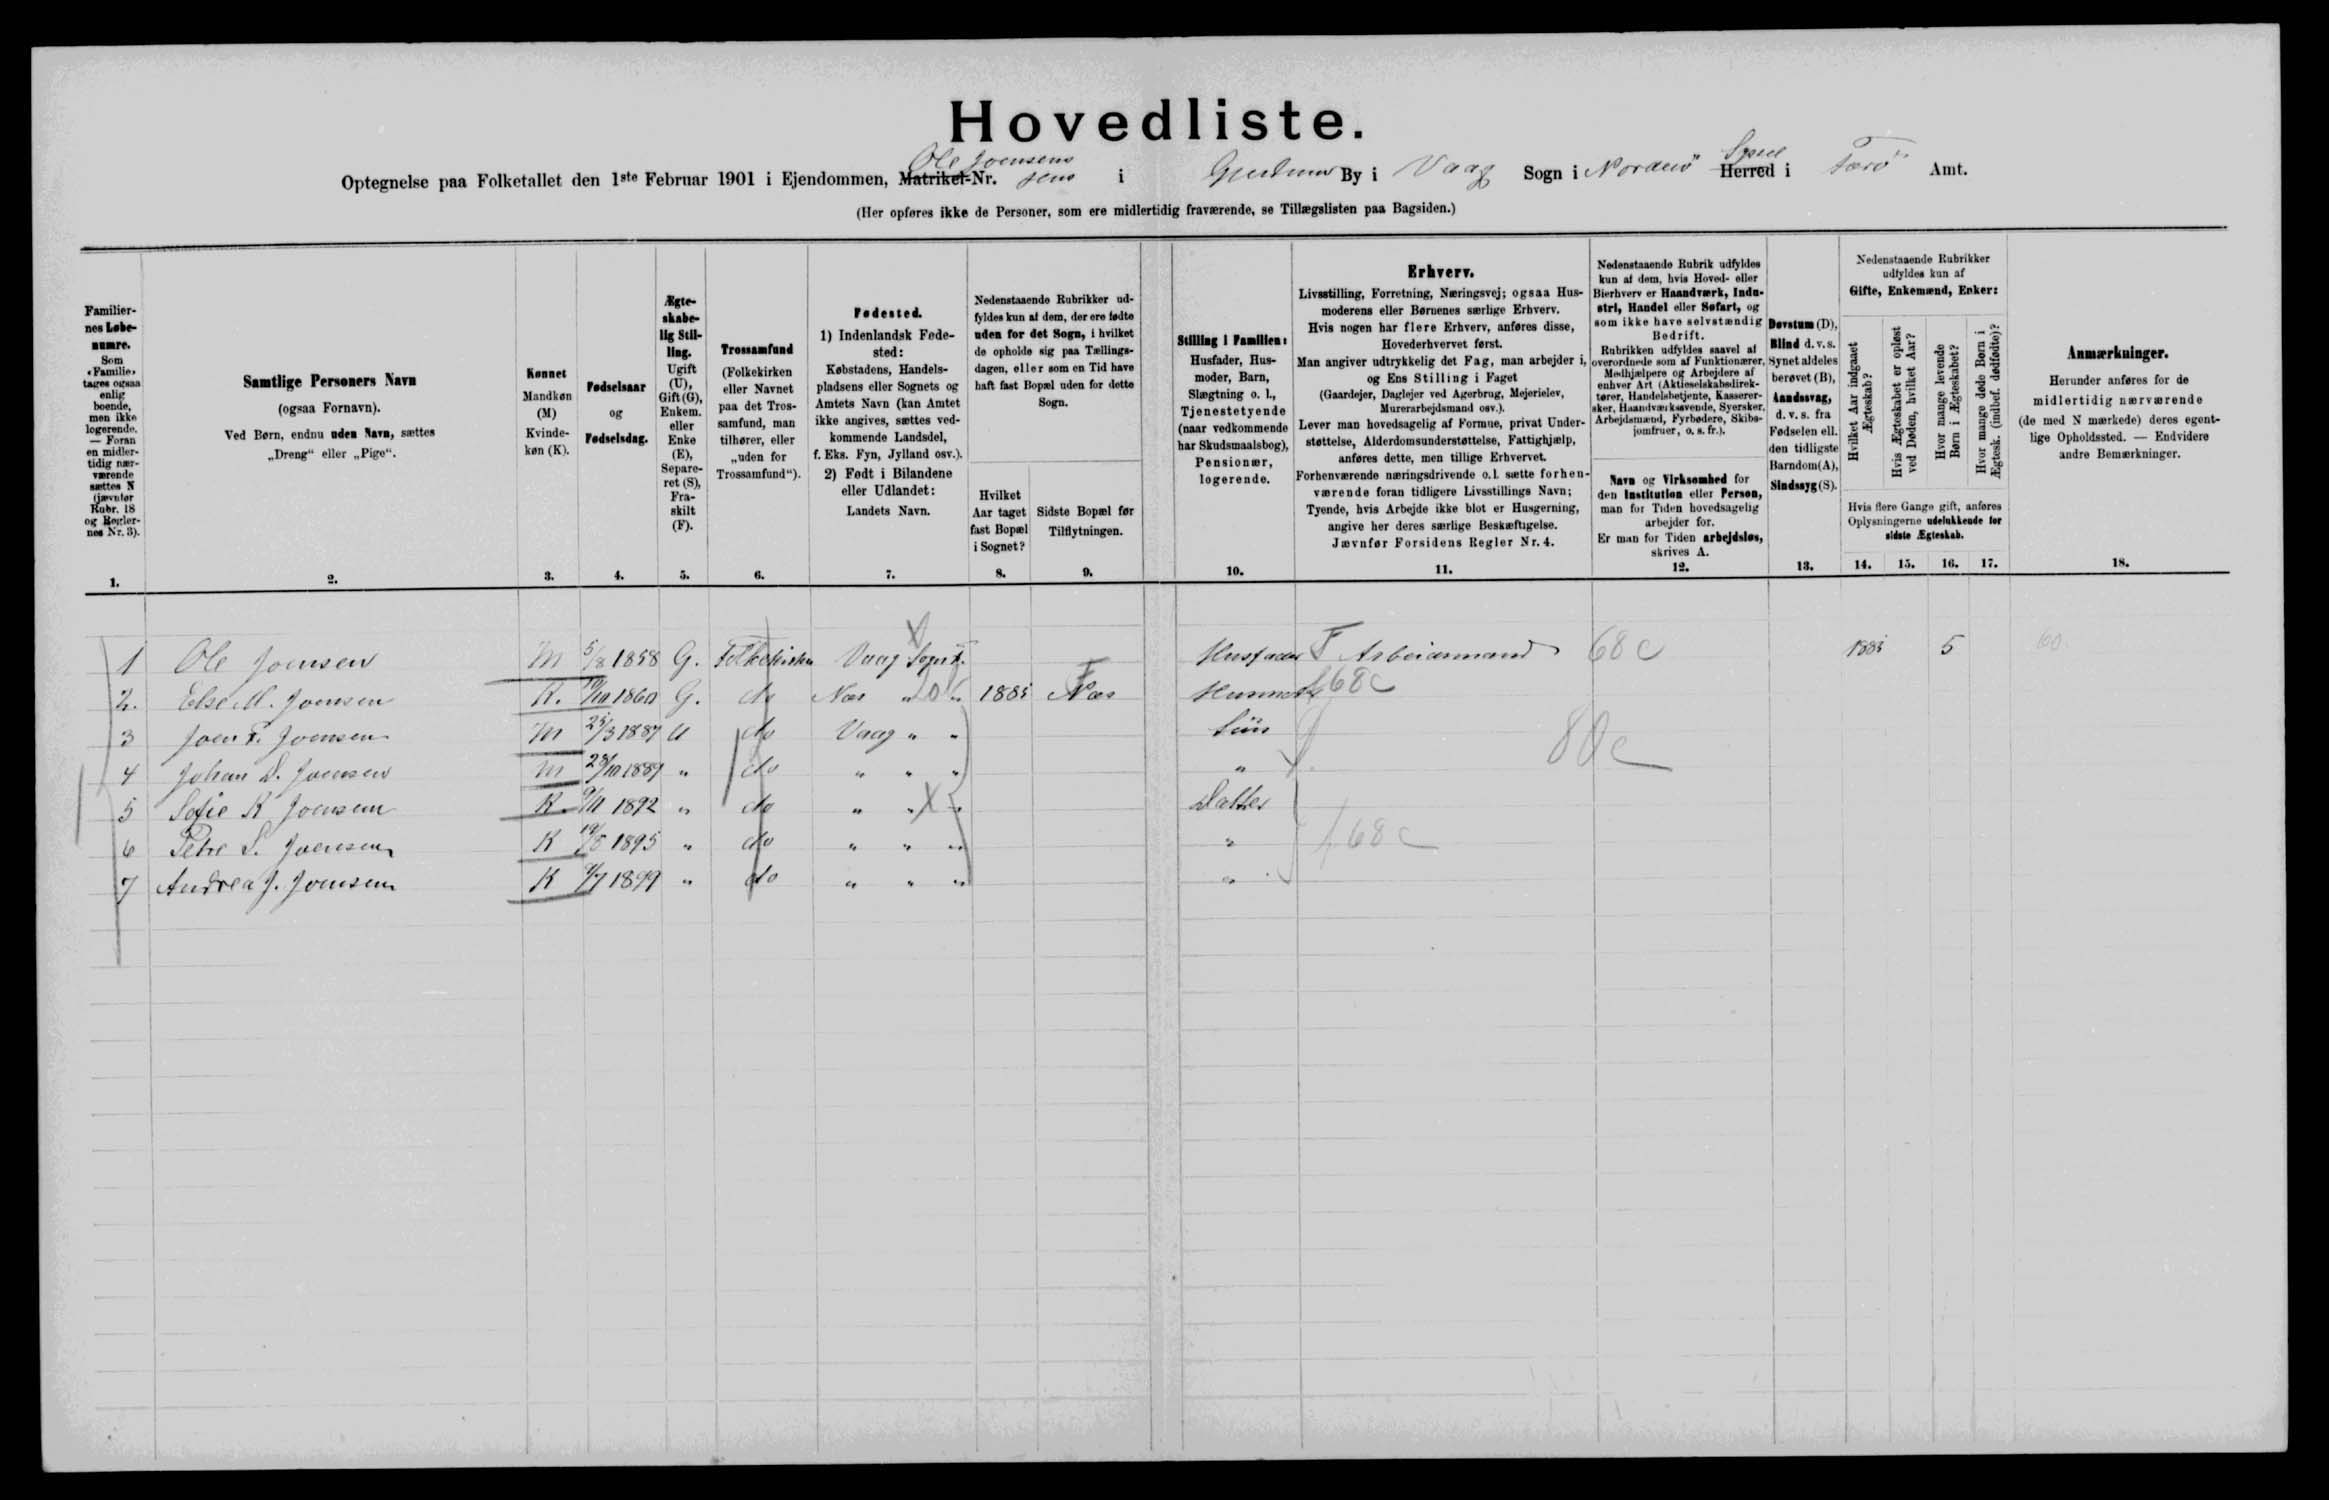 Hovedliste.
Optegnelse paa Folketallet den 1ste Februar 1901 i Ejendommen, Matrikel-Nr. Ole Joensens i By i Vaag Sogn i Norderø Herred Syssel i Færø Amt.
(Her opføres ikke de Personer, som ere midlertidig fraværende, se Tillægslisten paa Bagsiden.)
Familier-
nes Løbe-
numre.
Som
«Familie»
tages ogsaa
enlig
boende,
men ikke
logerende.
— Foran
en midler-
tidig nær-
værende
sættes N
(jævnfør
Rubr. 18
og Regler-
nes Nr. 3).
1.
Samtlige Personers Navn
(ogsaa Fornavn).
Ved Børn, endnu uden Navn, sættes
„Dreng“ eller „Pige“.
2.
Kønnet
Mandkøn
(M)
Kvinde-
køn (K).
3.
Fødselsaar
og
Fødselsdag.
4.
Ægte-
skabe-
lig Stil-
ling.
Ugift
(U),
Gift (G),
Enkem.
eller
Enke
(E),
Separe-
ret (S),
Fra-
skilt
(F).
5.
Trossamfund
(Folkekirken
eller Navnet
paa det Tros-
samfund, man
tilhører, eller
„uden for
Trossamfund“).
6.
Fødested.
1) Indenlandsk Føde-
sted:
Købstadens, Handels-
pladsens eller Sognets og
Amtets Navn (kan Amtet
ikke angives, sættes ved-
kommende Landsdel,
f. Eks. Fyn, Jylland osv.).
2) Født i Bilandene
eller Udlandet:
Landets Navn.
7.
Nedenstaaende Rubrikker ud-
fyldes kun af dem, der ere fødte
uden for det Sogn, i hvilket
de opholde sig paa Tællings-
dagen, eller som en Tid have
haft fast Bopæl uden for dette
Sogn.
Hvilket
Aar taget
fast Bopæl
i Sognet?
8.
Sidste Bopæl før
Tilflytningen.
9.
Stilling i Familien:
Husfader, Hus-
moder, Barn,
Slægtning o. l.,
Tjenestetyende
(naar vedkommende
har Skudsmaalsbog),
Pensionær,
logerende.
10.
Erhverv.
Livsstilling, Forretning, Næringsvej; ogsaa Hus-
moderens eller Børnenes særlige Erhverv.
Hvis nogen har flere Erhverv, anføres disse,
Hovederhvervet først.
Man angiver udtrykkelig det Fag, man arbejder i,
og Ens Stilling i Faget
(Gaardejer, Daglejer ved Agerbrug, Mejerielev,
Murerarbejdsmand osv.).
Lever man hovedsagelig af Formue, privat Under-
støttelse, Alderdomsunderstøttelse, Fattighjælp,
anføres dette, men tillige Erhvervet.
Forhenværende næringsdrivende o. l. sætte forhen-
værende foran tidligere Livsstillings Navn;
Tyende, hvis Arbejde ikke blot er Husgerning,
angive her deres særlige Beskæftigelse.
Jævnfør Forsidens Regler Nr. 4.
11.
Nedenstaaende Rubrik udfyldes
kun af dem, hvis Hoved- eller
Bierhverv er Haandværk, Indu-
stri, Handel eller Søfart, og
som ikke have selvstændig
Bedrift.
Rubrikken udfyldes saavel af
overordnede som af Funktionærer,
Medhjælpere og Arbejdere af
enhver Art (Aktieselskabsdirek-
tører, Handelsbetjente, Kasserer-
sker, Haandværkssvende, Syersker,
Arbejdsmænd, Fyrbødere, Skibs-
jomfruer, o. s. fr.).
Navn og Virksomhed for
den Institution eller Person,
man for Tiden hovedsagelig
arbejder for.
Er man for Tiden arbejdsløs,
skrives A.
12.
Døvstum (D),
Blind d. v. s.
Synet aldeles
berøvet (B),
Aandssvag,
d. v. s. fra
Fødselen ell.
den tidligste
Barndom (A),
Sindssyg (S).
13.
Nedenstaaende Rubrikker
udfyldes kun af
Gifte, Enkemænd, Enker:
Hvilket Aar indgaaet
Ægteskab?
Hvis Ægteskabet er opløst
ved Døden, hvilket Aar?
Hvor mange levende
Børn i Ægteskabet?
Hvor mange døde Børn i
Ægtesk. (indbef. dødfødte)?
Hvis flere Gange gift, anføres
Oplysningerne udelukkende for
sidste Ægteskab.
14. 15. 16. 17.
Anmærkninger.
Herunder anføres for de
midlertidig nærværende
(de med N mærkede) deres egent-
lige Opholdssted. — Endvidere
andre Bemærkninger.
18.
1 Ole Joensen M 5/8 1858 G. Folkekirken Vaag Sogn F. Husfader F Arbeidsmand 68 c 1885 5
2. Else M. Joensen K. 10/10 1860 G. do Næs " " 1885 Næs Husmoder 68 c
3 Joen F. Joensen M 25/3 1887 U do Vaag " " Søn 80 c
4 Johan D. Joensen M 28/10 1889 " do " " " "
5 Sofie K Joensen K 9/11 1892 " do " " " Datter
6 Petre S. Joensen K 19/8 1895 " do " " " " 68 c
7 Andrea J. Joensen K 9/7 1899 " do " " " "